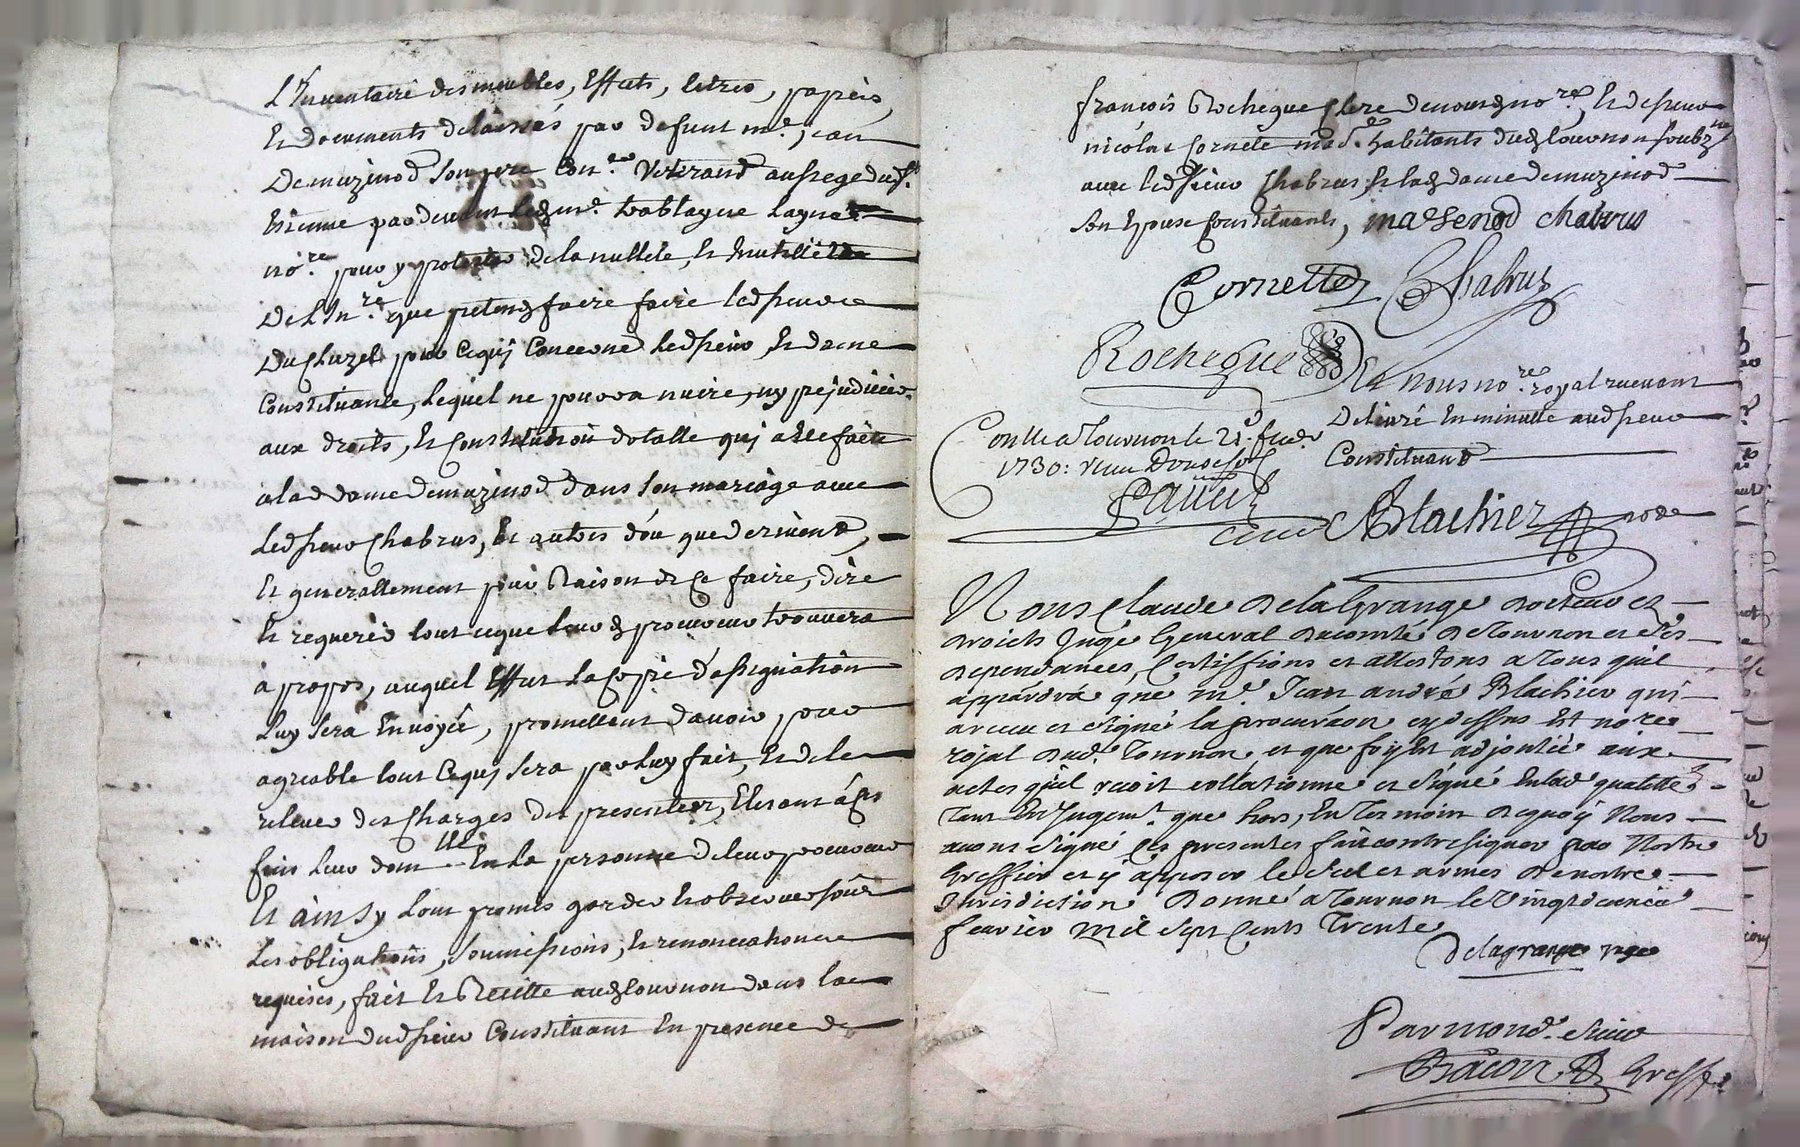 L'Inventaire des meubles, Effects, titres, papiers,
Et documents delaissés par defunt me. jean
Demazinod son pere Conr. Veterand au siege dudt.
Etienne par devant ledt me. trablayne
nore. pour y protester de la nullité, Et Inutilité
De L'Inre. que pretend faire faire led sieur
DuCluzel pour Ce qui Concerne led sieur Et dame
Constituants, lequel ne pourra nuire, ny prejudicier
aux droits, Et Constitution dotalle qui a Esté faite
a lad dame demazinod dans son mariage avec
led sieur Chabrus, Et autres d'ou que derivent,
Et generallement pour Raison de Ce faire, dire
Et requerir tout ce que leur d procureur trouvera
à propos, auquel Effect La Copie d'assignation
Luy sera Envoyée, promettent d'avoir pour
agreable tout Ce quy sera par luy fait, Et de le
relever des Charges des presentes, Elisant à Ces
fins leur domlle En La personne de leur procureur
Et ainsy L'ont promis garder Et observer sous
Les obligations, soumissions, Et renonciations
requises, fait Et Recitté audt tournon dans la
maison dud sieur Constituant En presence de
françois Rochegue Clerc de nous d nore. Et de sieur
nicolas Cornete md. habitants dudt tournon soubznes
avec led sieur Chabrus Et lad dame demazinod
son Epouse Constituants, mazenod chabrus
Cornette Chabrus
Rochegue
Et nous nore. royal recevant
Delivré En minutte aud sieur
Constituant
Conlle a Tournon le 21e. fevr.
1730: receu Douse sols
Blachier nore
Nous Claude Delagrange docteur es
droicts Juge General du comté de Tournon et ses
dependances, Certiffions et attestons a tous quil
appardra que me. Jean andré Blachier qui
a receu et signé la procuraon cy dessus Est no.re
rojal dud. Tournon et que foy Est adjoutée aux
actes quil recoit collationne et signe En lad qualitté
tant En Jugemt. que hors, En Temoin de quoy Nous
avons signé ces presentes fait contresigner par Nostre
Greffier et y apposer le scel et armes de nostre
Jurisdiction Donné a Tournon le Vingtdeuxie
fevrier Mil Sept Cents Trente
Delagrange juge
Par mond. sieur
Bacon Greffr.